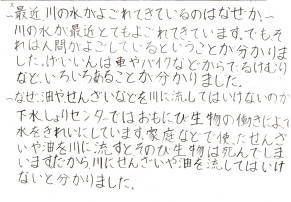 ~最近川の水がよごれてきているのはなぜか~
川の水が最近とてもよごれてきています。でもそ
れは人間がよごしているということが分かりま
した。げいいんは車やバイクなどからでるけむり
など、いろいろあることが分かりました。
~なぜ油やせんざいなどを川に流してはいけないのか
下水しょりセンターではおもにび生物の働きによって
水をきれいにしています。家庭などで使ったせんざ
いや油を川に流すとそのび生物は死んでしま
います。だから川にせんざいや油を流してはいけ
ないと分かりました。